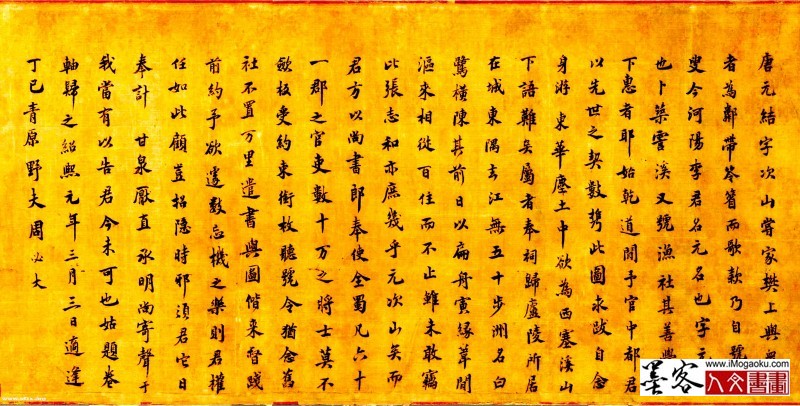 唐元結字次山嘗家樊上與
者為鄰帶笭箵而歌欵乃自號
叟今河陽李君名元名也字元
也卜築霅溪又號漁社其善與
下惠者耶始乾道間予官中都君
以先世之契數携此圖求跋自念
身游東華塵土中欲為西塞溪山
下語難矣屬者奉祠歸廬陵所居
在城東隅去江無五十步洲名白
鷺橫陳其前日以扁舟寅緣葦間
漚來相從百住而不止雖未敢竊
比張志和亦庶幾乎元次山矣而
君方以尚書郎奉使全蜀凡六十
一郡之官吏數十万之將士莫不
歛板受約束銜枚聽號令猶念舊
社不置万里遣書與圖偕来督踐
前約予欲遽數忘機之樂則君權
任如此顧豈招隱時邪須君它日
奉計 甘泉厭直承明尚寄聲于
我當有以告君今未可也姑題卷
軸歸之紹熙元年三月三日適逢
丁巳青原野夫周必大
墨客
www.iMogaoku.com
人文書畫